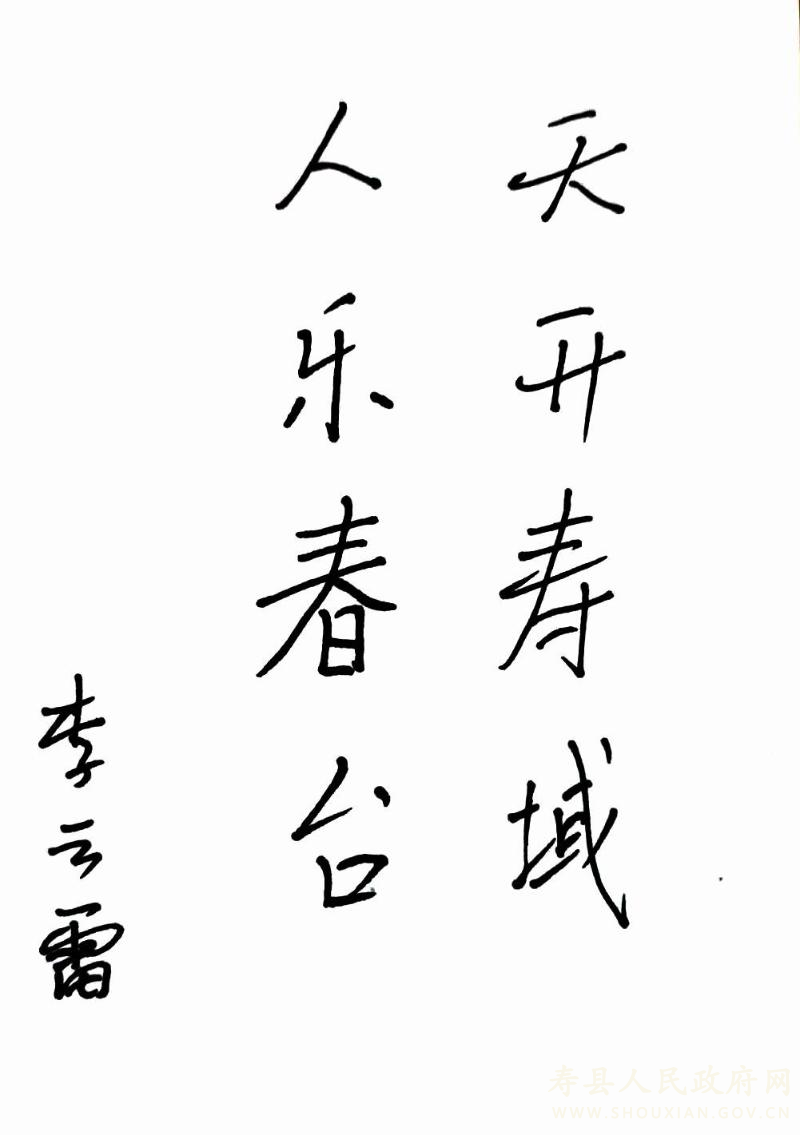 天开寿域
人乐春台
李云雷
寿县人民政府网
WWW.SHOUXIAN.GOV.CN